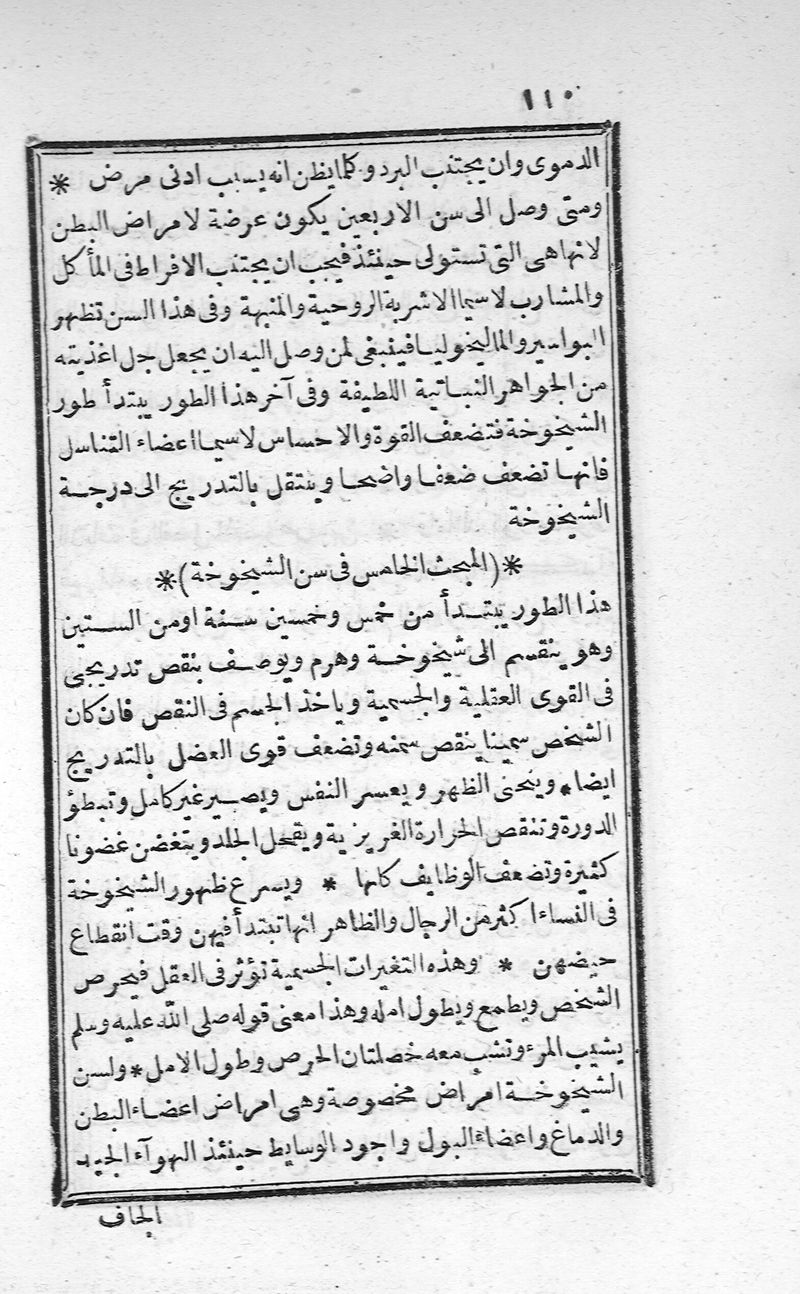 ١١٠
الدموى وان يجتنب البرد وكلما يظن انه يسبب ادنى مرض *
ومتى وصل الى سن الاربعين يكون عرضة لامراض البطن
لانها هى التى تستولى حينئذ فيجب ان يجتنب الافراط فى المأكل
والمشارب لاسيما الاشربة الروحية والمنبهة وفى هذا السن تظهر
البواسير والماليخوليا فينبغى لمن وصل اليه ان يجعل جل اغذيته
من الجواهر النباتية اللطيفة وفى آخر هذا الطور يبتدأ طور
الشيخوخة فتضعف القوة والاحساس لاسيما اعضاء التناسل
فانها تضعف ضعفا واضحا وينتقل بالتدريج الى درجة
الشيخوخة
*(المبحث الخامس فى سن الشيخوخة)*
هذا الطور يبتدأ من خمس وخمسين سنة اومن الستين
وهو ينقسم الى شيخوخة وهرم ويوصف بنقص تدريجى
فى القوى العقلية والجسمية وياخذ الجسم فى النقص فان كان
الشخص سمينا ينقص سمنه وتضعف قوى العضل بالتدريج
ايضا * وينحنى الظهر ويعسر النفس ويصير غير كامل وتبطؤ
الدورة وتنقص الحرارة الغريزية ويقحل الجلد ويتغضن غضونا
كثيرة وتضعف الوظايف كلها * ويسرع ظهور الشيخوخة
فى النساء اكثر من الرجال والظاهر انها تبتدأ فيهن وقت انقطاع
حيضهن * وهذه التغيرات الجسمية تؤثر فى العقل فيحرص
الشخص ويطمع ويطول امله وهذا معنى قوله صلى الله عليه وسلم
يشيب المرء وتشب معه خصلتان الحرص وطول الامل * ولسن
الشيخوخة امراض مخصوصة وهى امراض اعضاء البطن
والدماغ واعضاء البول واجود الوسايط حينئذ الهوآء الجيد
الجاف